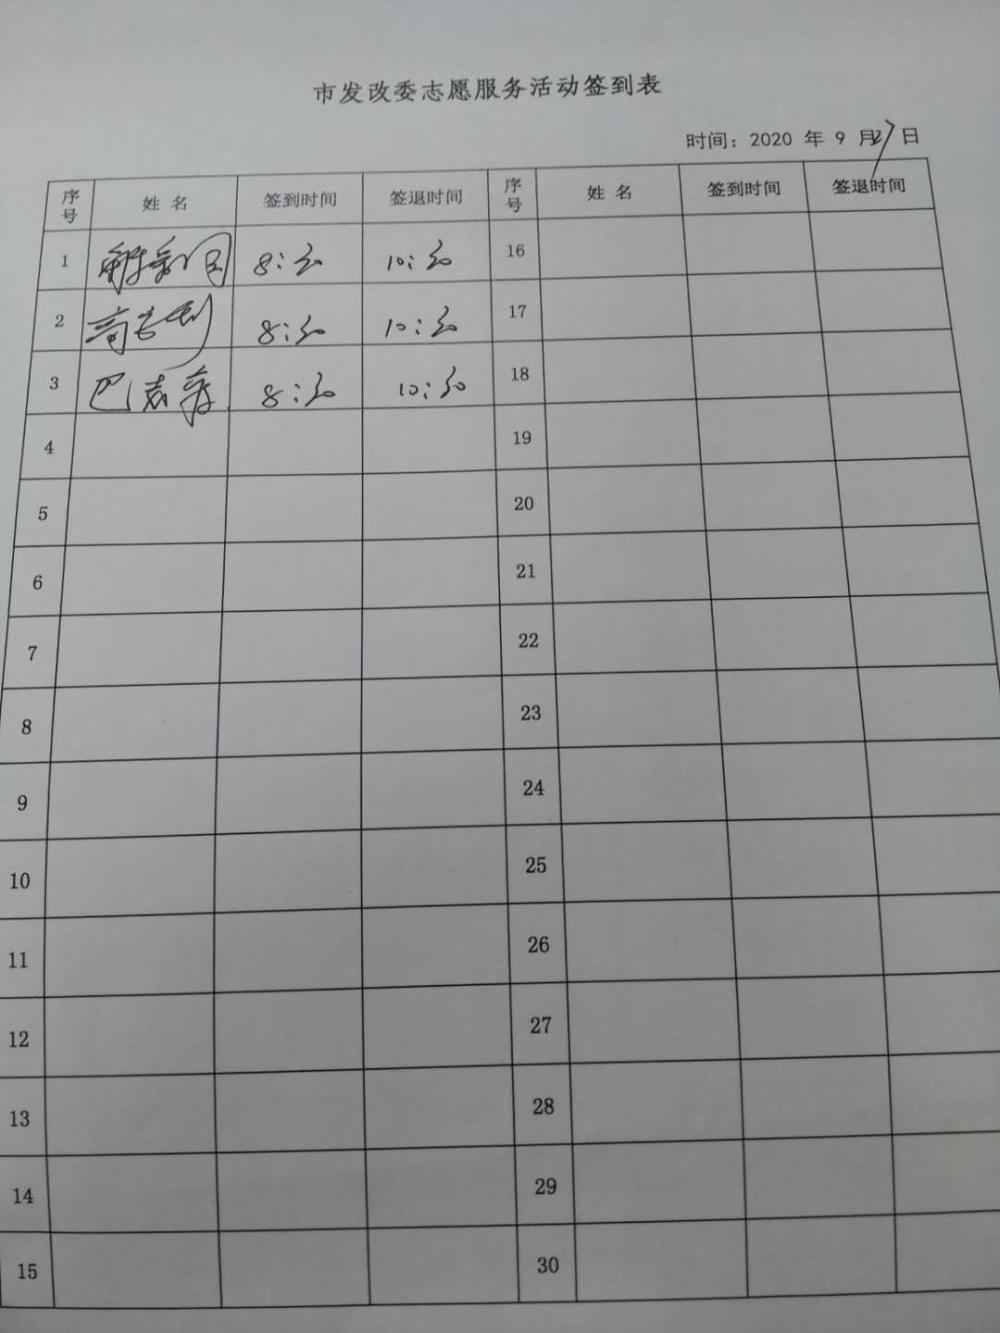 市发改委志愿服务活动签到表
时间：2020 年 9 月27日
序号 姓 名 签到时间 签退时间 序号 姓 名 签到时间 签退时间
1 8:30 10:30 16
2 8:30 10:30 17
3 巴 8:30 10:30 18
4 19
5 20
6 21
7 22
8 23
9 24
10 25
11 26
12 27
13 28
14 29
15 30